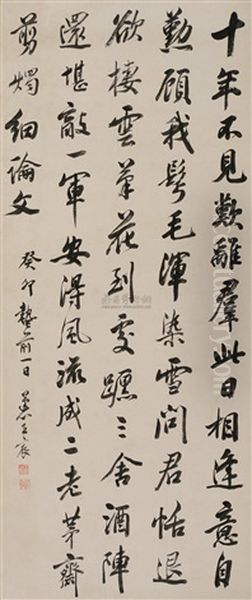 十年不見歎離羣此日相逢意自
勤顧我髩毛渾染雪問君恬退
欲棲雲筆花到處三舍酒陣
還堪敵一軍安得風流成二老茅齋
剪燭細論文
癸卯蟄前一日 王宸